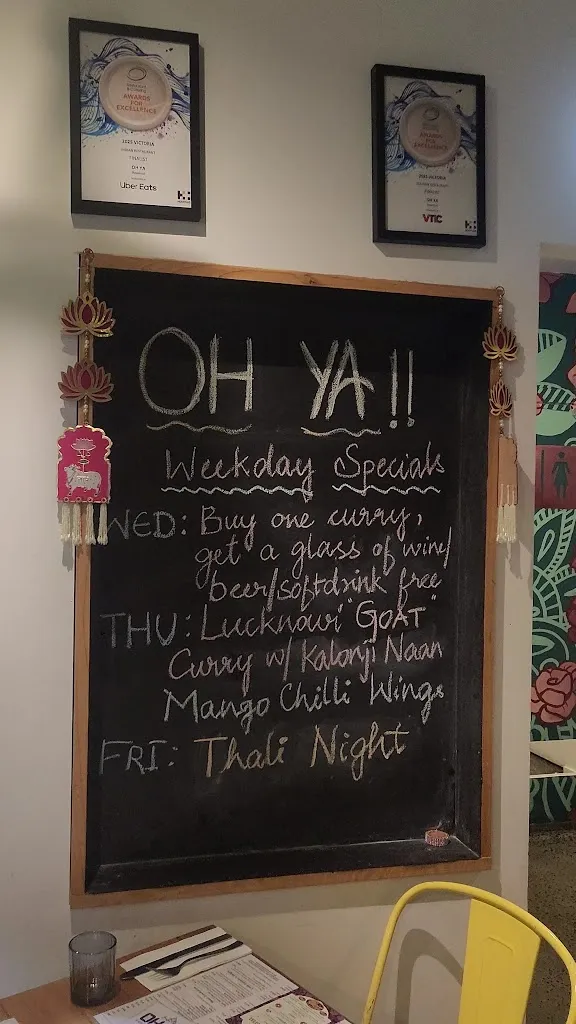 AWARDS
FOR
EXCELLENCE
2023 VICTORIA
FINALIST
OH YA
Uber Eats
AWARDS
FOR
EXCELLENCE
FINALIST
OH YA
VTIC
OH YA!!
Weekday Specials
WED: Buy one curry,
get a glass of wine/
beer/softdrink free
THU: Lucknowi "GOAT"
Curry w/ Kalonji Naan
Mango Chilli Wings
FRI: Thali Night